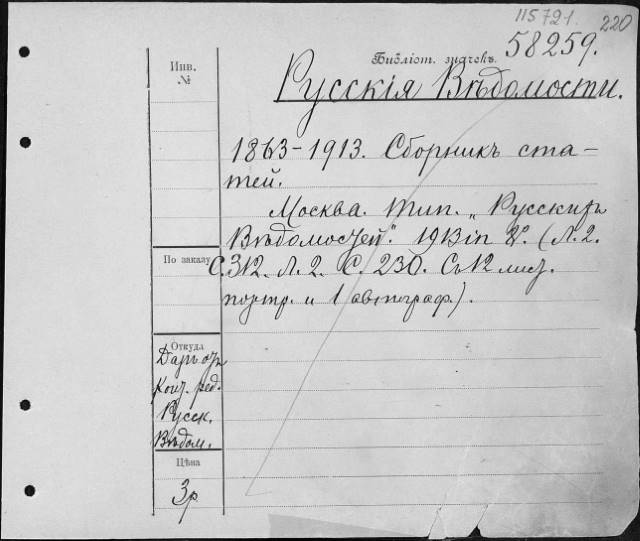 115721. 220
Библіот. значекъ.
58259.
Инв.
№
Русскія Вѣдомости.
1863-1913. Сборникъ ста-
тей.
Москва. Тип. „Русскихъ
Вѣдомостей". 1913 in 8°. (Л. 2.
По заказу
С. 312. Л. 2. С. 230. Съ 12 лист.
портр. и 1 автограф.).
Откуда
Даръ отъ
Конт. ред.
Русск.
Вѣдом.
Цѣна
3р